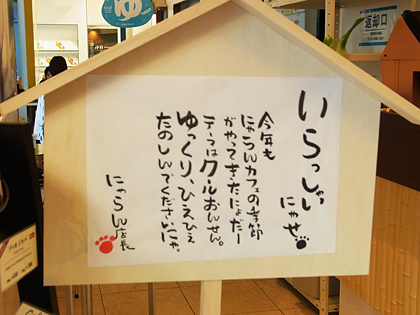 いらっしゃい
にゃせ
今年も
にゃらんカフェの季節
がやってきたにょだー
テーマはクールおんせん。
ゆっくり、ひえひえ
たのしんでくださいにゃ。
にゃらん店長
ゆ
返却口